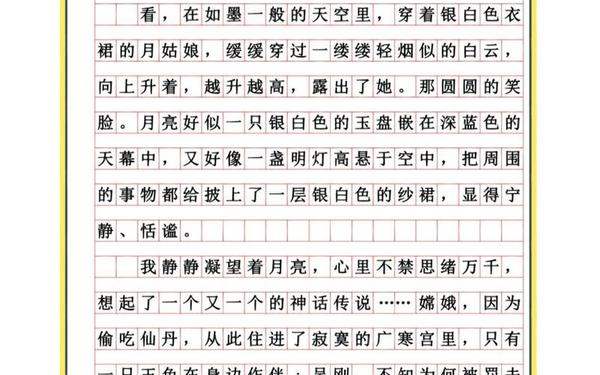 看，在如墨一般的天空里，穿着银白色衣
裙的月姑娘，缓缓穿过一缕缕轻烟似的白云，
向上升着，越升越高，露出了她。那圆圆的笑
脸。月亮好似一只银白色的玉盘嵌在深蓝色的
天幕中，又好像一盏明灯高悬于空中，把周围
的事物都给披上了一层银白色的纱裙，显得宁
静、恬谧。
我静静凝望着月亮，心里不禁思绪万千，
想起了一个又一个的神话传说……嫦娥，因为
偷吃仙丹，从此住进了寂寞的广寒宫里，只有
一只玉兔在身边作伴；吴刚，不知为何被罚去